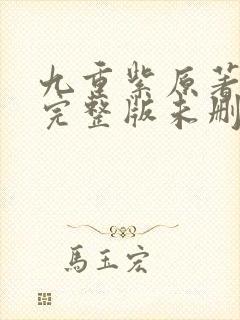 九重紫原著
完整版未删
馬玉宏